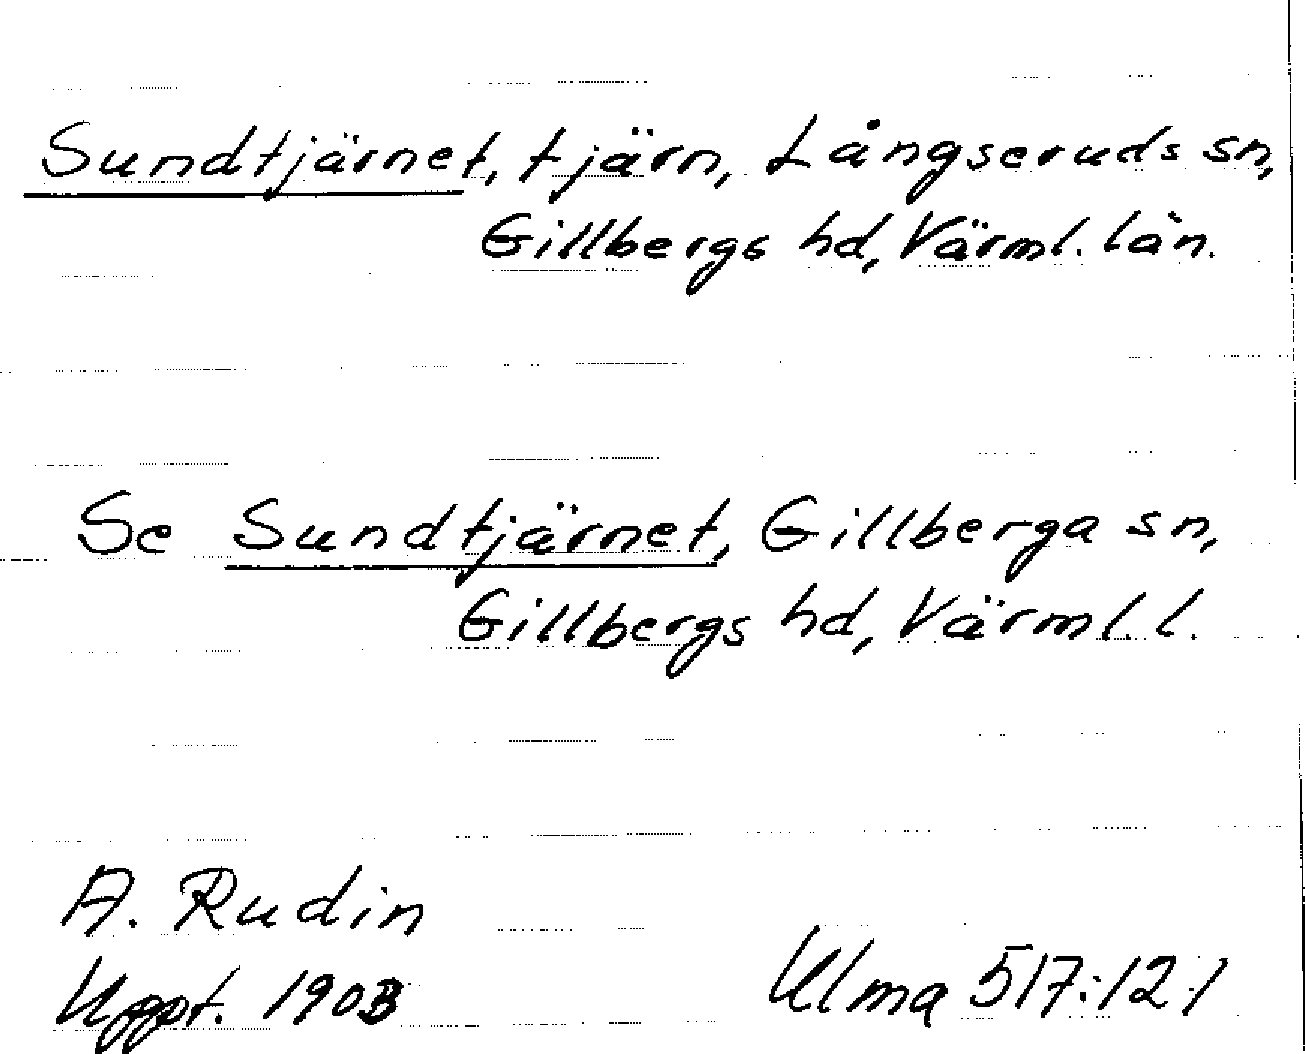 Sundtjärnet, tjärn, Långseruds sn,
Gillbergs hd, Värml. län.
Se Sundtjärnet, Gillberga sn,
Gillbergs hd, Värml. l.
A. Rudin
Uppt. 1903
Ulma 517:12:1